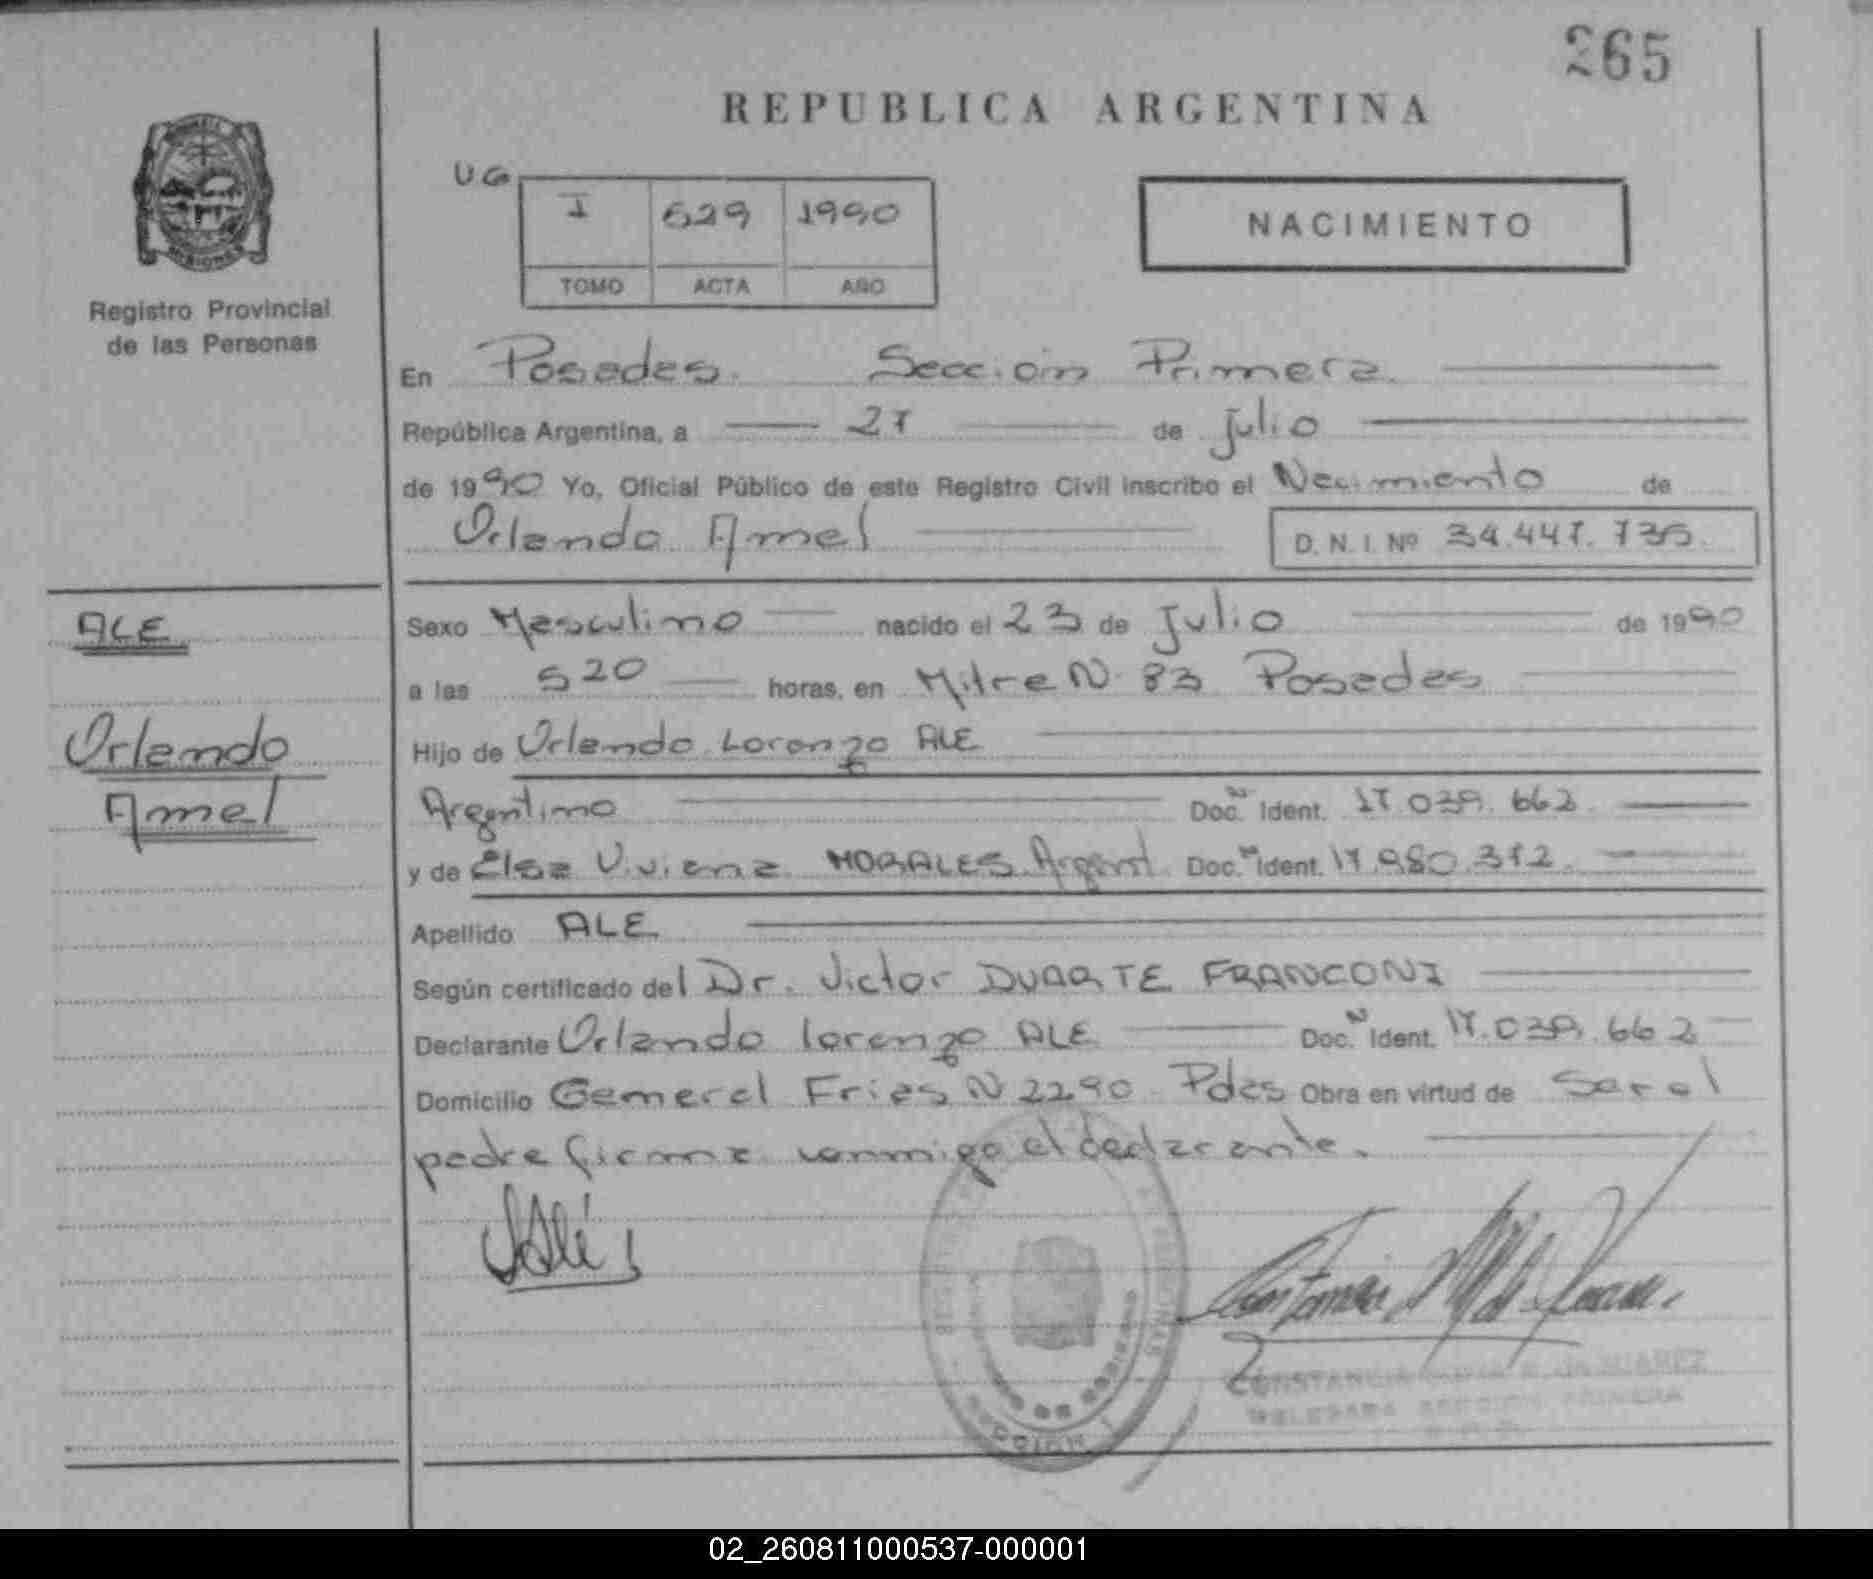 265
REPUBLICA ARGENTINA
UG
I 529 1990
TOMO ACTA AÑO
NACIMIENTO
MISIONES
Registro Provincial
de las Personas
En Posadas. Sección Primera.
República Argentina, a 27 de Julio
de 1990 Yo, Oficial Público de este Registro Civil inscribo el Nacimiento de
Orlando Amel D. N. I. Nº 34.447.735.
ALE
Orlando
Amel
Sexo Masculino nacido el 23 de Julio de 1990
a las 520 horas, en Mitre N 83 Posadas
Hijo de Orlando Lorenzo ALE
Argentino Doc. N Ident. 17.039.662
y de Elsa Viviana MORALES Argent. Doc. N Ident. 17.980.372.
Apellido ALE
Según certificado del Dr. Victor DUARTE FRANCONI
Declarante Orlando Lorenzo ALE Doc. N Ident. 17.039.662
Domicilio General Frias N 2290 Pdas Obra en virtud de ser el
padre firma conmigo el declarante.
CONSTANCIA JUAREZ
DELEGADA SECCION PRIMERA
02_260811000537-000001